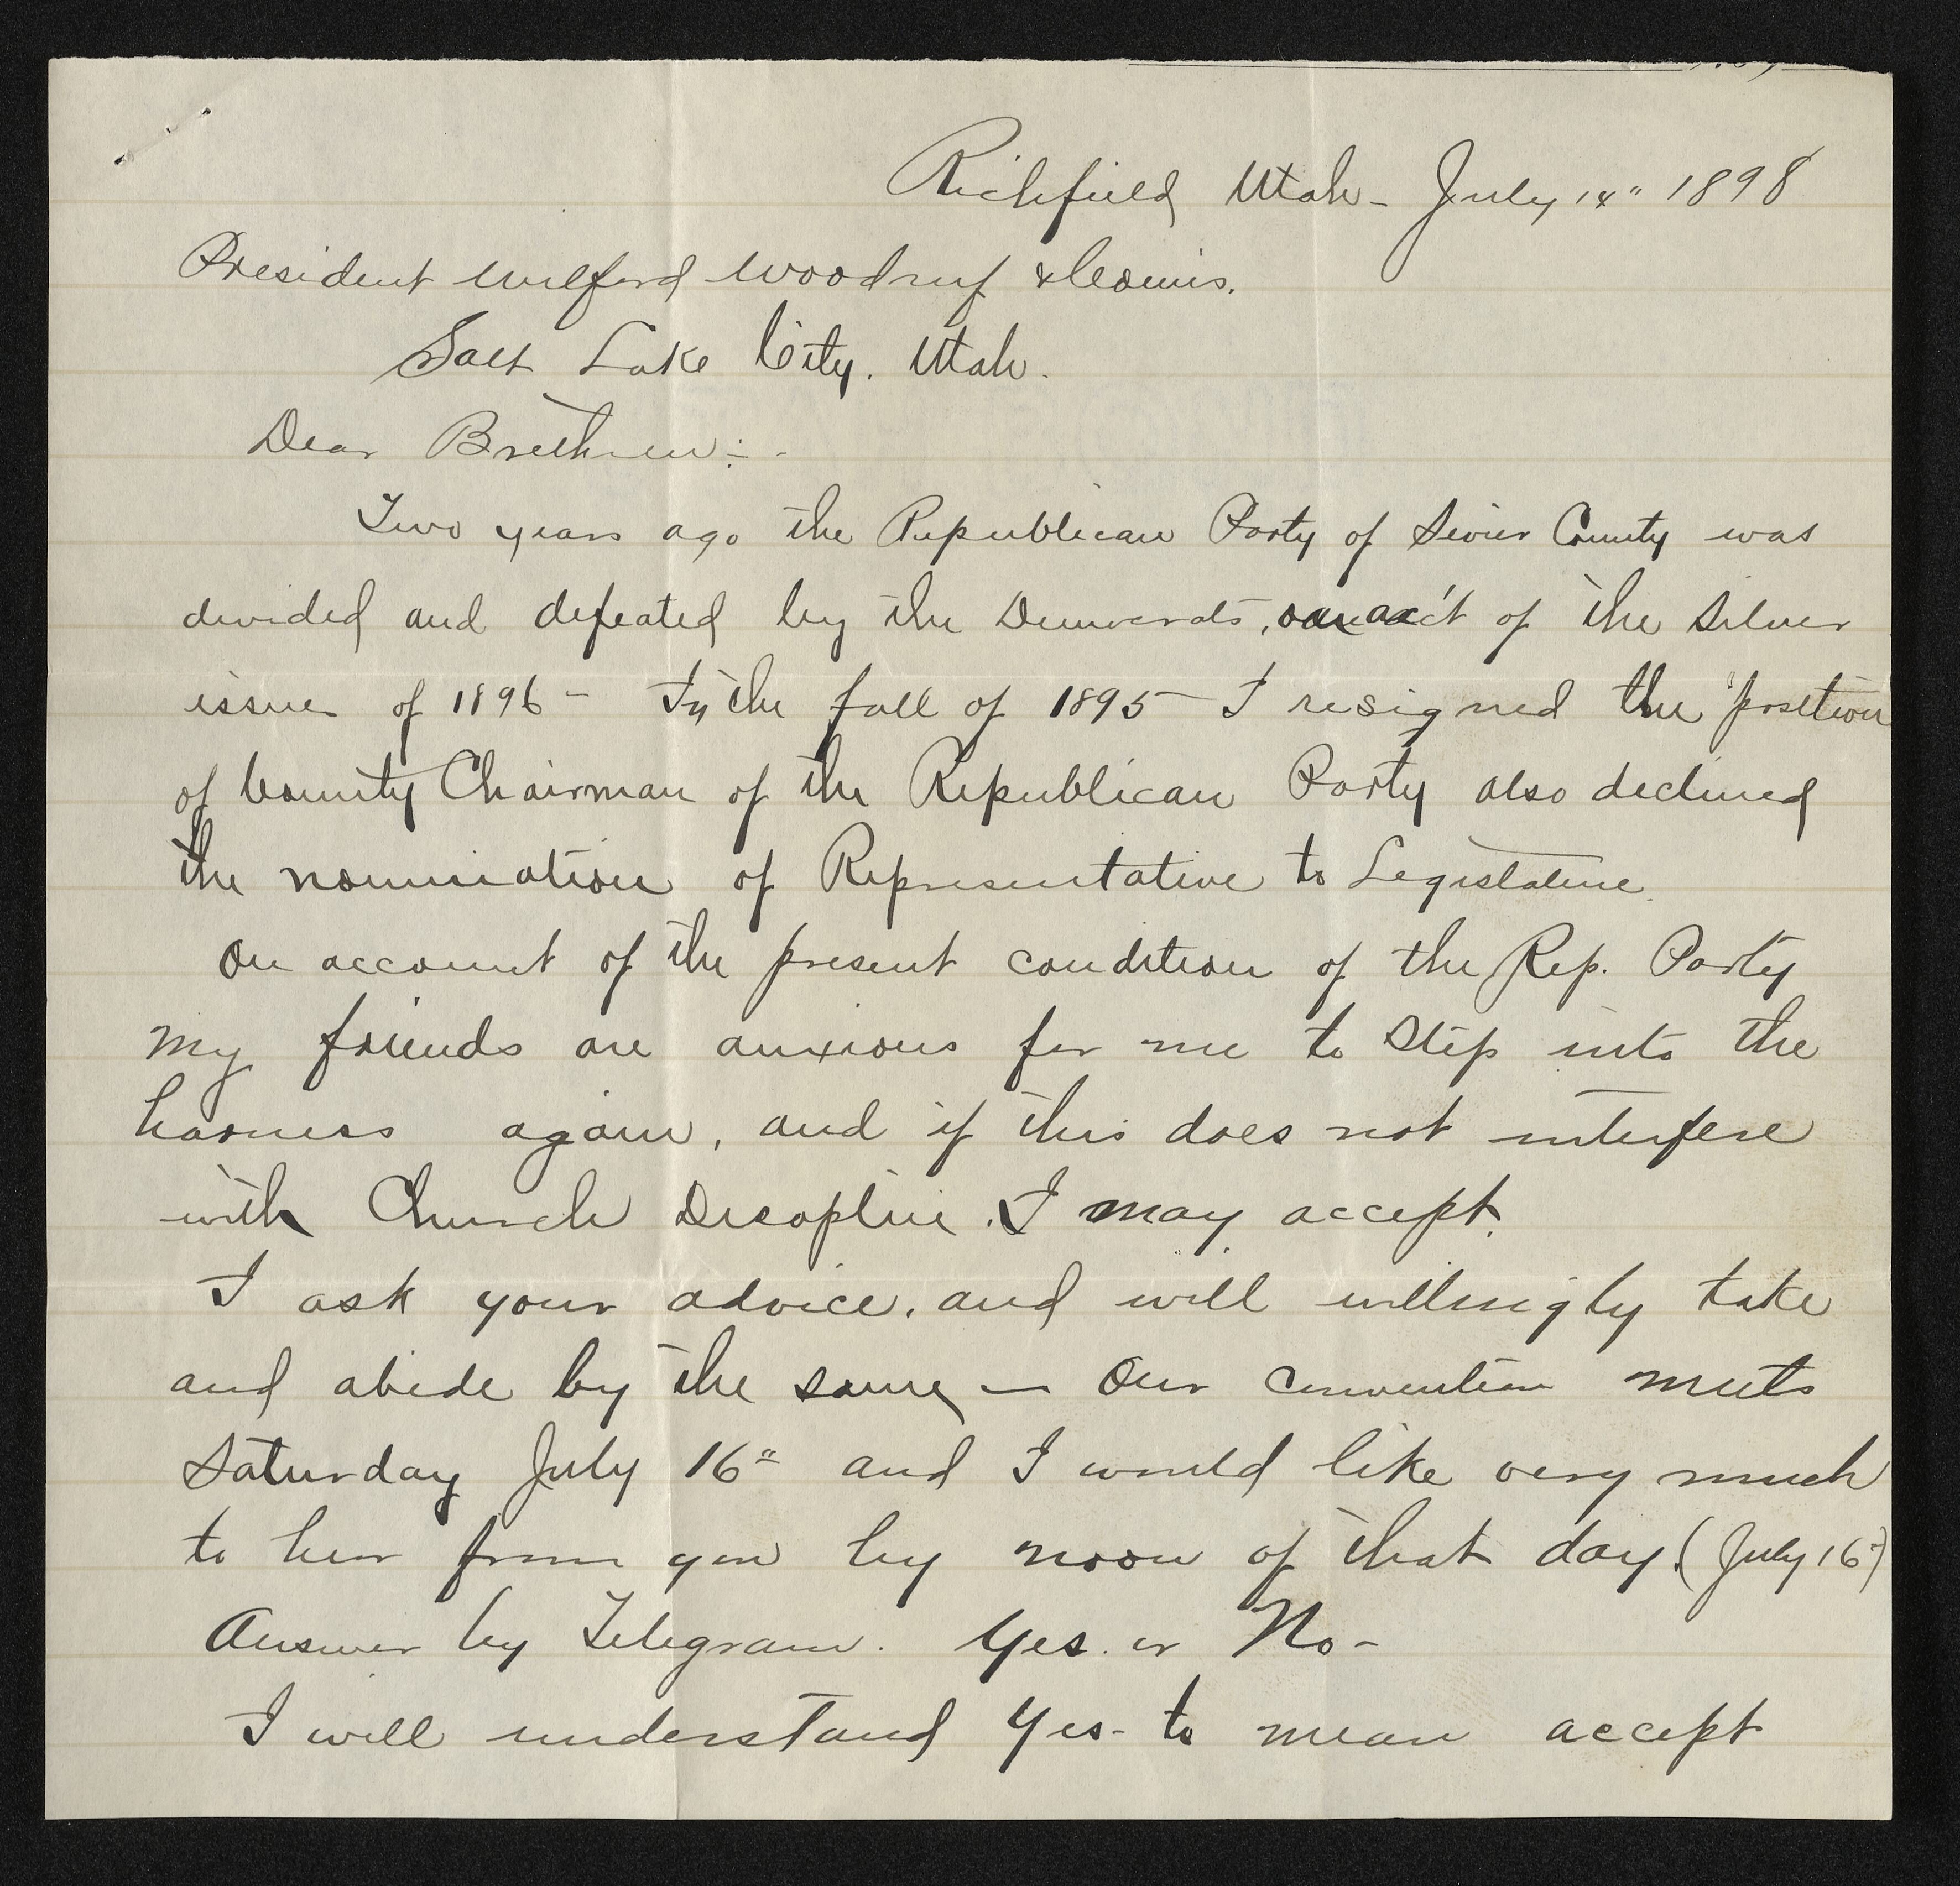 Richfield Utah - July 14" 1898
President Wilford Woodruf & Couns.
Salt Lake City. Utah.
Dear Brethren:-
Two years ago the Republican Party of Sevier County was
divided and defeated by the Democrats, on ac't of the Silver
issue of 1896 - In the fall of 1895 - I resigned the position
of County Chairman of the Republican Party also declined
the nomination of Representative to Legislature.
On account of the present condition of the Rep. Party
my friends are anxious for me to step into the
harness again, and if this does not interfere
with Church Discipline. I may accept.
I ask your advice, and will willingly take
and abide by the same - Our convention meets
Saturday July 16" and I would like very much
to hear from you by noon of that day. (July 16")
Answer by Telegram. Yes. or No -
I will understand Yes - to mean accept